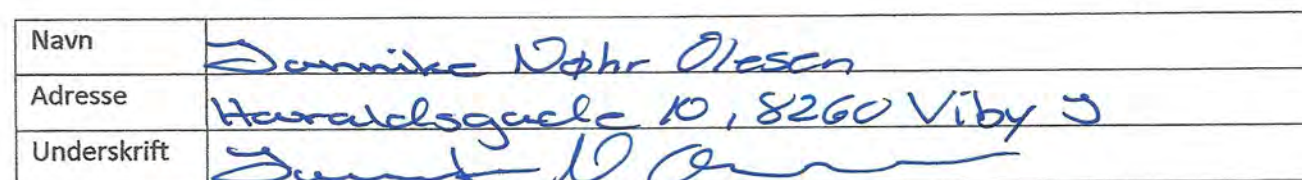 Navn Jannike Nøhr Olesen
Adresse Haraldsgade 10, 8260 Viby J
Underskrift